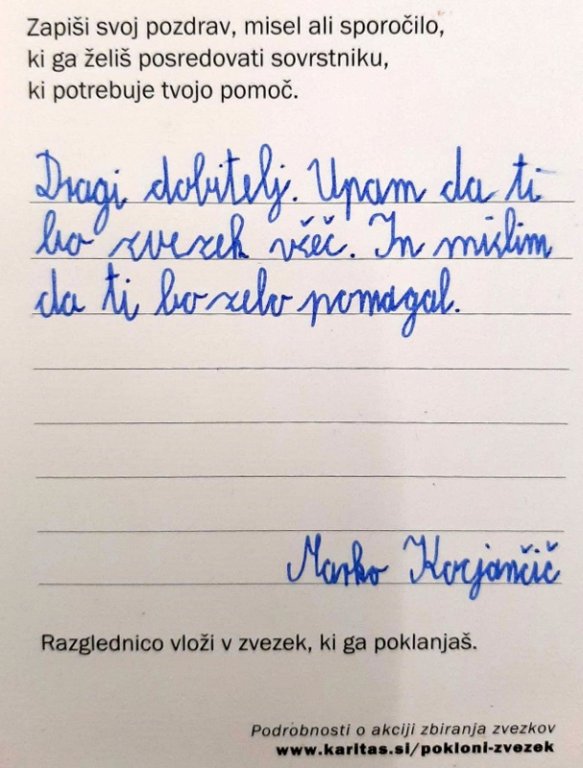 Zapiši svoj pozdrav, misel ali sporočilo,
ki ga želiš posredovati sovrstniku,
ki potrebuje tvojo pomoč.
Dragi dobitelj. Upam da ti
bo zvezek všeč. In mislim
da ti bo zelo pomagal.
Marko Korjančič
Razglednico vloži v zvezek, ki ga poklanjaš.
Podrobnosti o akciji zbiranja zvezkov
www.karitas.si/pokloni-zvezek